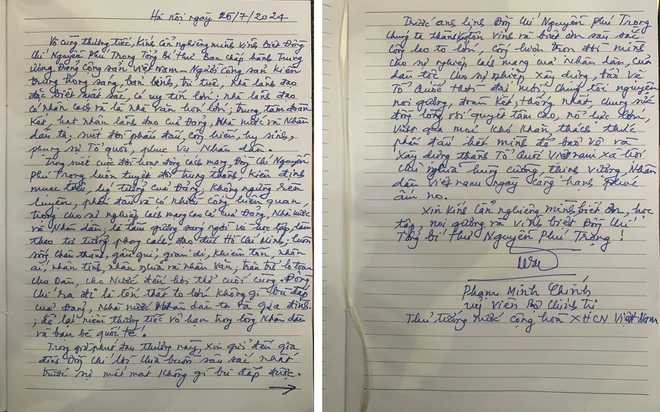 Hà Nội, ngày 25/7/2024
Vô cùng thương tiếc, kính cẩn nghiêng mình vĩnh biệt Đồng
Chí Nguyễn Phú Trọng Tổng Bí thư Ban chấp hành Trung
ương Đảng Cộng sản Việt Nam - Người cộng sản kiên
trung, trong sáng, bản lĩnh, trí tuệ, nhà lãnh đạo
đặc biệt xuất sắc, có uy tín lớn; nhà lãnh đạo
có nhân cách và là nhà văn hoá lớn; trung tâm đoàn
kết, hạt nhân lãnh đạo của Đảng, Nhà nước và Nhân
dân ta, suốt đời phấn đấu, cống hiến, hy sinh,
phụng sự Tổ quốc, phục vụ Nhân dân.
Trong suốt cuộc đời hoạt động cách mạng, Đồng Chí Nguyễn
Phú Trọng luôn tuyệt đối trung thành, kiên định
mục tiêu, lý tưởng của Đảng, không ngừng rèn
luyện, phấn đấu và có nhiều cống hiến quan
trọng cho sự nghiệp cách mạng cao cả của Đảng, Nhà nước
và Nhân dân; là tấm gương sáng ngời về học tập, làm
theo tư tưởng, phong cách, đạo đức Hồ Chí Minh; cuộc
sống chân thành, gần gũi, giản dị, khiêm tốn, nhân
ái, nhân tình, nhân nghĩa và nhân văn; trăn trở lo toan
cho Dân, cho Nước đến hơi thở cuối cùng. Đồng
Chí ra đi là tổn thất to lớn không gì bù đắp
của Đảng, Nhà nước, Nhân dân ta và Gia đình
; để lại niềm thương tiếc vô hạn trong lòng Nhân dân
và bạn bè quốc tế!
Trong giờ phút đau thương này, xin gửi đến gia
đình Đồng Chí lời chia buồn sâu sắc nhất
trước sự mất mát không gì bù đắp được.
Trước anh linh Đồng Chí Nguyễn Phú Trọng
chúng ta thành kính tôn vinh và biết ơn sâu sắc
công lao to lớn, cống hiến trọn đời mình
cho sự nghiệp cách mạng của Nhân dân, của
dân tộc, cho sự nghiệp xây dựng, bảo vệ
Tổ quốc thời đại mới, chúng tôi nguyện
noi gương, đoàn kết, thống nhất, chung sức
đồng lòng với quyết tâm cao, nỗ lực lớn,
vượt qua mọi khó khăn, thách thức
phấn đấu hết mình để bảo vệ và
xây dựng thành Tổ quốc Việt Nam xã hội
chủ nghĩa hùng cường, thịnh vượng, Nhân
dân Việt Nam ngày càng hạnh phúc
ấm no.
Xin kính cẩn nghiêng mình biết ơn, học
tập, noi gương và vĩnh biệt Đồng Chí
Tổng bí thư Nguyễn Phú Trọng!
Phạm Minh Chính
Uỷ viên Bộ Chính trị
Thủ tướng nước Cộng hoà XHCN Việt Nam